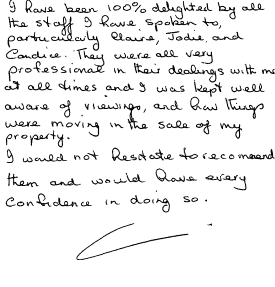 I have been 100% delighted by all
the staff I have spoken to,
particularly Claire, Jodie, and
Candice. They were all very
professional in their dealings with me
at all times and I was kept well
aware of viewings, and how things
were moving in the sale of my
property.
I would not hesitate to recomend
them and would have every
confidence in doing so.